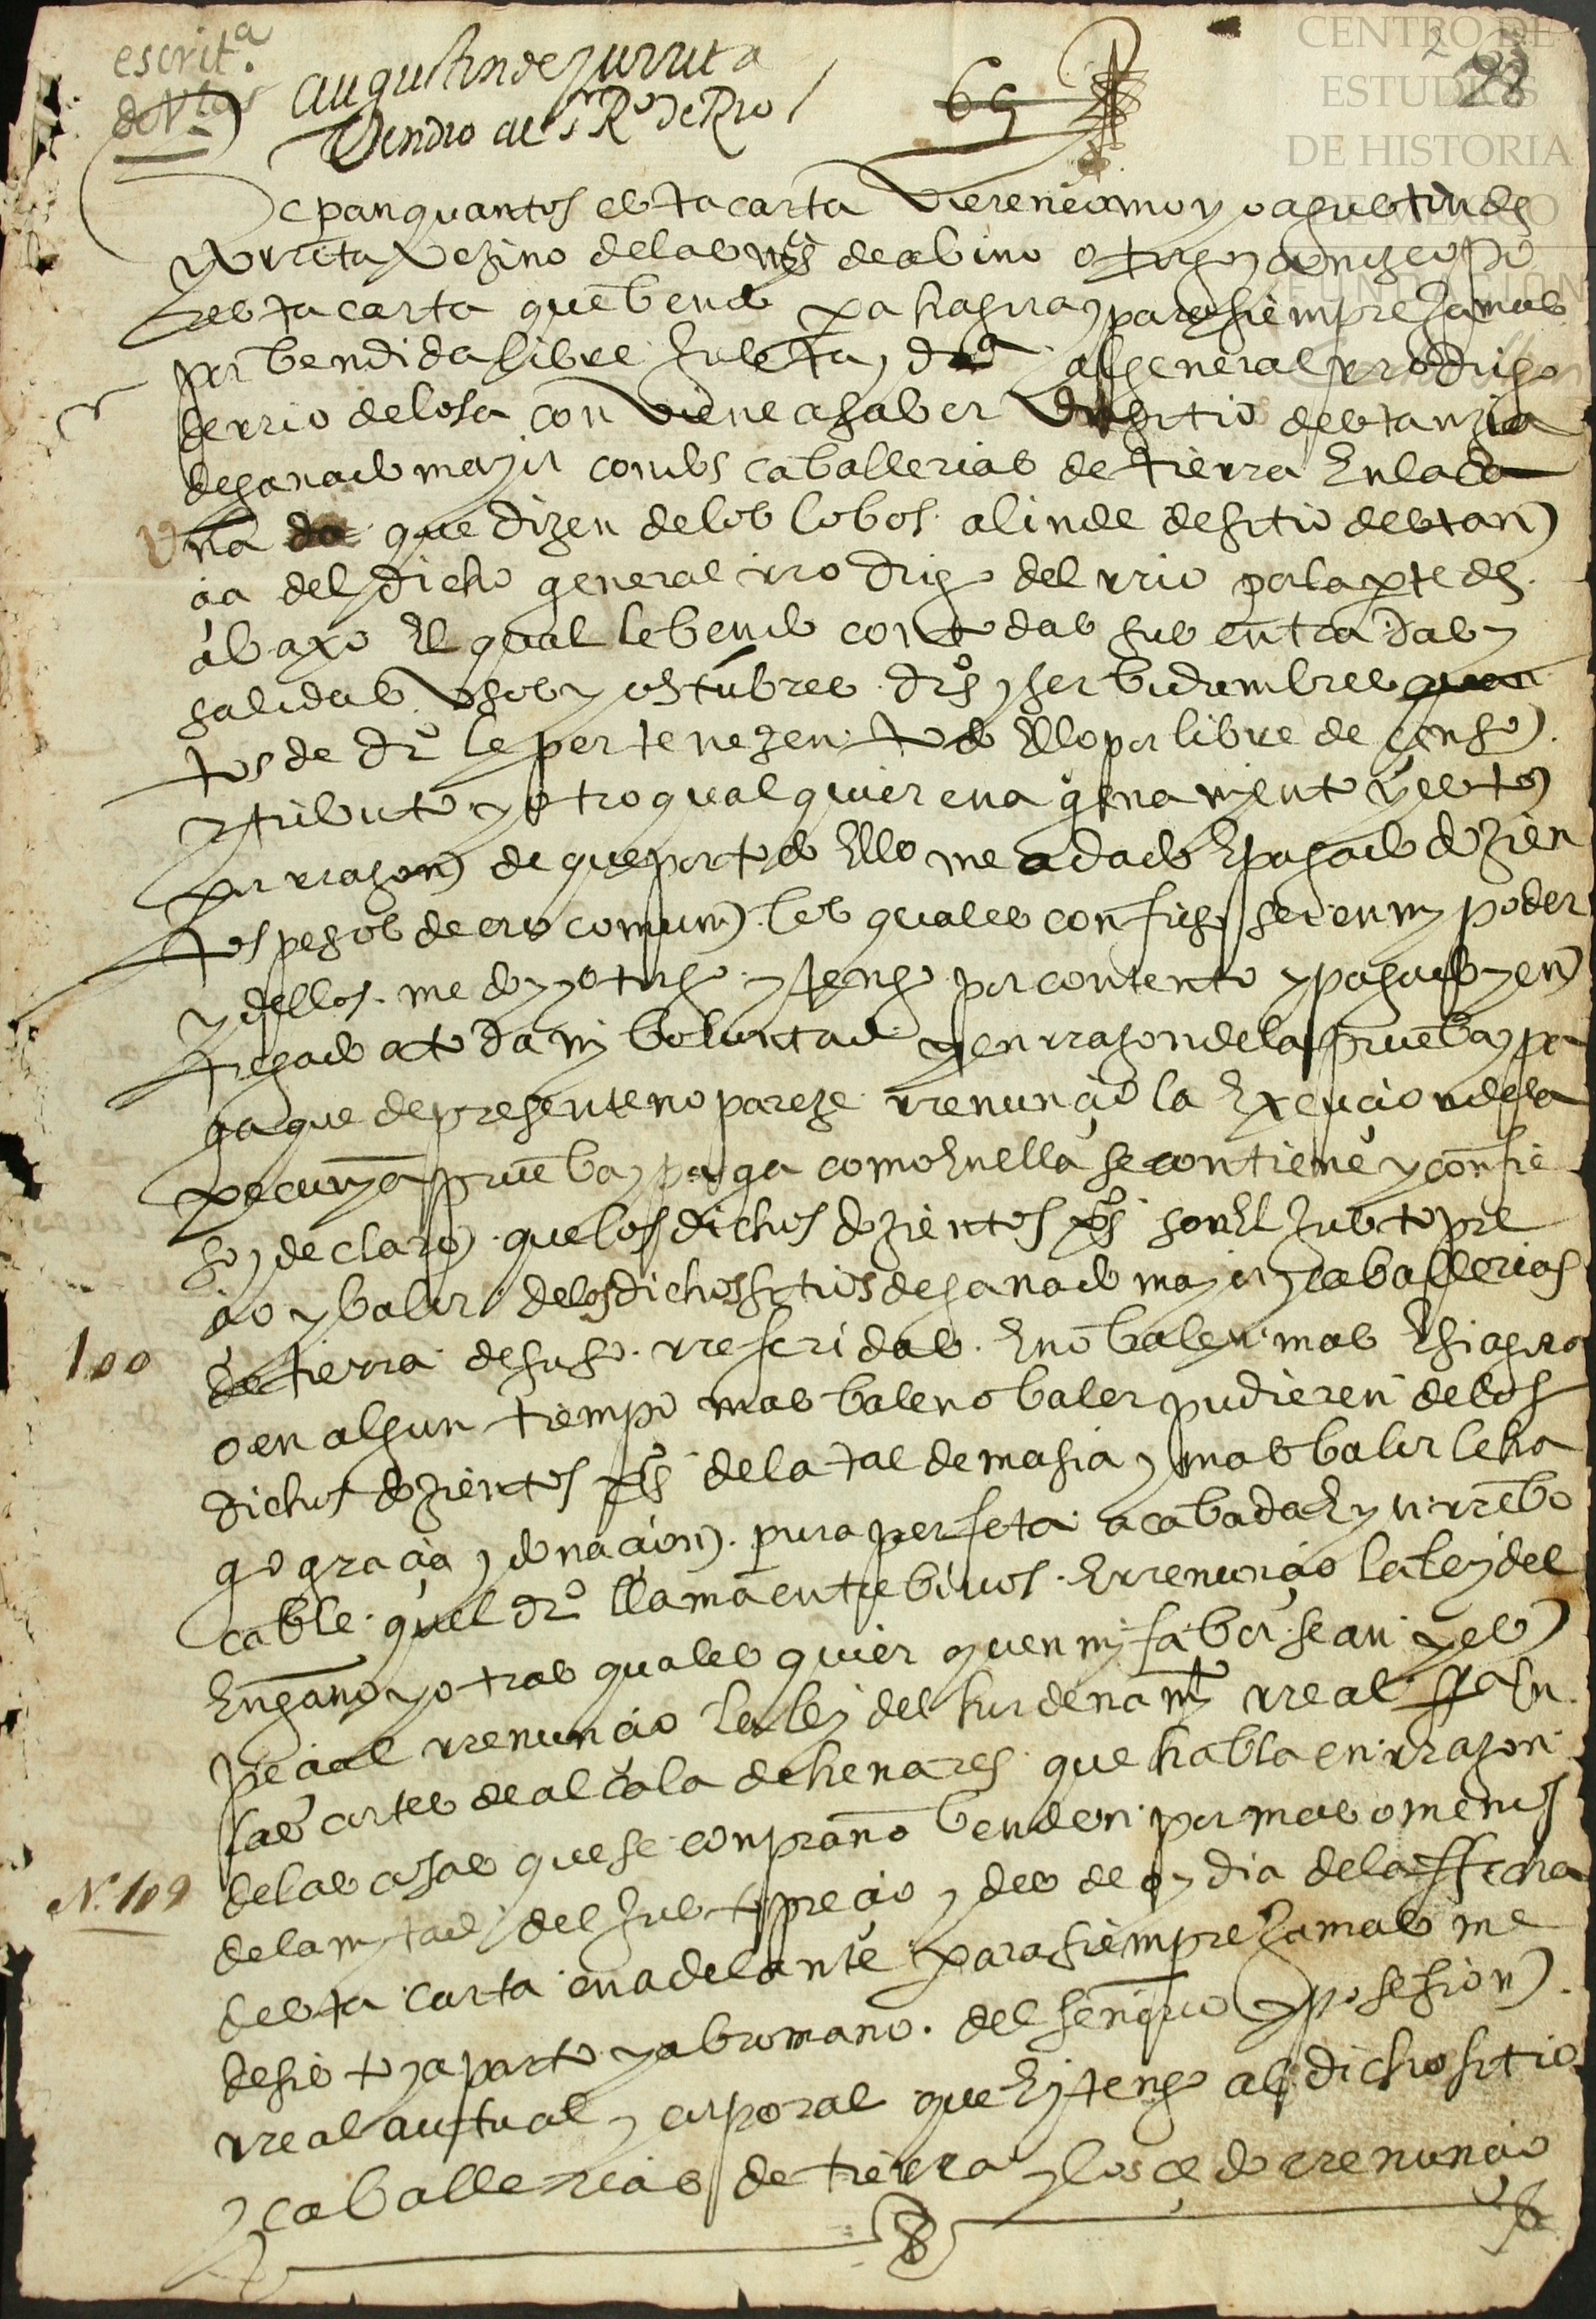 escrit.ª
de V.tas
augustin de zurrita
Vendio al sr Rº de Rio
65
2
28
CENTRO DE
ESTUDIOS
DE HISTORIA
DE MEXICO
FUNDACIÓN
Sepan quantos esta carta Vieren como yo agustin de
zurrita Vezino de las mys de abino otorgo y conozco pr
esta carta que bendo pa hagora y para siempre Jamas
por bendida libre Justa y dra al general rrodrigo
derrio delosa con Viene a saber Un sitio destanzia
de ganado mayor con dos caballerias de tierra En la ca
ña da que dizen de los lobos alinde de sitio destan
çia del dicho general rrodrigo del rrio por la pte de
abaxo El qual le bendo con todas sus entradas y
salidas Usos y costubres dros y serbidumbres quan
tos de drº le pertenezen todo Ello por libre de censo
y tributo y otro qualquier enagenamiento y esto
por rrazon de que por todo Ello me a dado E pagado dozien
tos pesos de oro comun los quales confieso ser en my poder
y dellos me doy y otorgo y tengo por contento y pagado y en
tregado a toda my boluntad y en rrazon de la prueba y pa
ga que de presente no pareze rrenunçio la Exeçuçion de la
pecunya prueba y paga como En ella se contiene y confie
so y declaro que los dichos dozientos ps son El Justo pre
çio y balor de los dichos sitios de ganado mayor y caballerias
de tierra de suso rreferidas E no balen mas E si agora
o en algun tiempo mas balen o baler pudieren de los
dichos dozientos ps de la tal demasia y mas balor le ha
go graçia y donaçion pura perfeta acabada E yn rrebo
cable quel drº llama entre bivos E rrenunçio la ley del
Engano y otras quales quier quen my fabor sean y es
peçial rrenunçio la ley del hordenamyº rreal ffa En
las cortes de alcala de henares que habla en rrazon
de las cosas que se conpran o benden por mas o menos
de la mytad del Justo preçio y des de oy dia de la ffecha
desta carta en adelante para siempre Jamas me
desisto y aparto y abro mano del señorio y posesion
rreal autual y corporal que E y tengo al dicho sitio
y caballerias de tierra y los çedo rrenunçio
100
N. 109